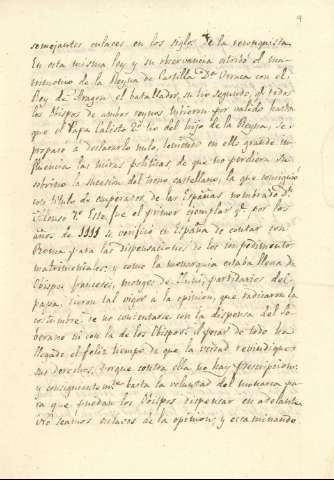 9
semejantes enlaces en los siglos de la reconquista.
En esta misma ley y su observancia estribó el ma-
trimonio de la Reyna de Castilla Dª Urraca con el
Rey de Aragon el batallador, su tio segundo, el todos
los Obispos de ambos reynos tuvieron por valido hasta
que el Papa Calisto 2º tio del hijo de la Reyna, se
preparó á declararlo nulo, teniendo en ello grande in-
fluencia las miras politicas de que no perdiera su
sobrino la sucesion del trono castellano, la que consiguió
con titulo de emperador de las Españas nombrado Dn
Alonso 7º Este fue el primer ejemplar qe por los
años de 1111 se verificó en España de contar con
Roma para las dispensaciones de los impedimentos
matrimoniales: y como la monarquia estaba llena de
Obispos franceses, monges de Cluni, partidarios del
papa, dieron tal vigor á la opinion, que radicaron la
costumbre de no contentarse con la dispensa del So-
berano ni con la de los Obispos. A pesar de todo ha
llegado el feliz tiempo de que la verdad revindique
sus derechos, porque contra ella no hay prescripcion:
y consiguientemte basta la voluntad del monarca pa-
ra que puedan los Obispos dispensar en adelante.
No seamos esclavos de la opinion; y examinando